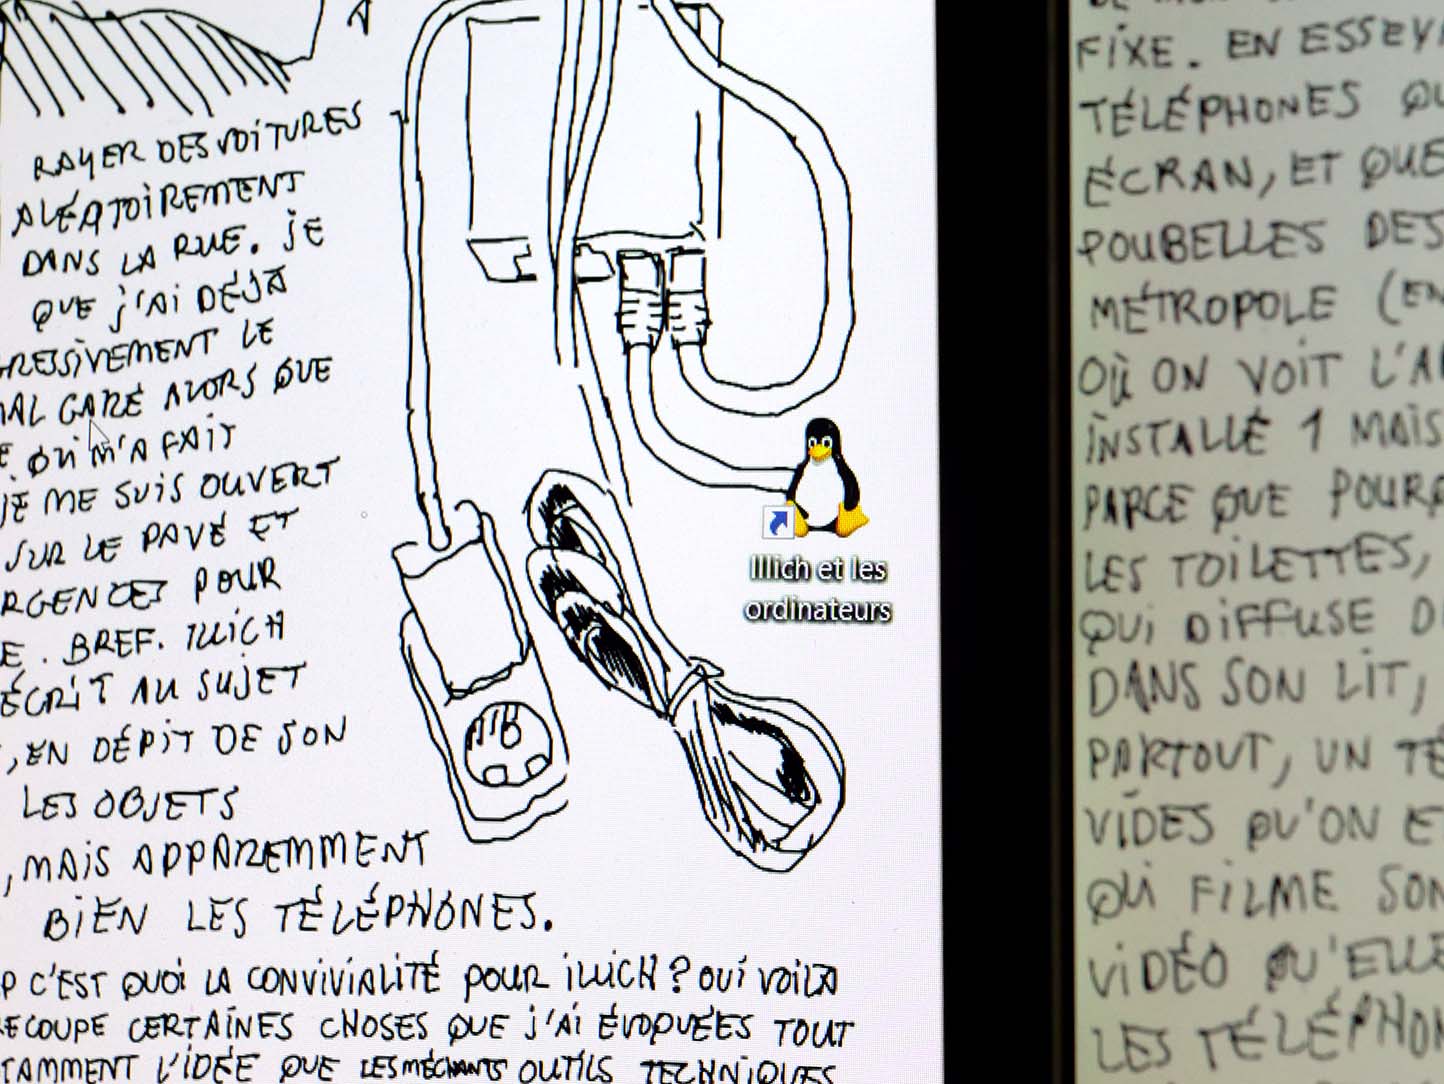 RAYER DES VOITURES
ALÉATOIREMENT
DANS LA RUE. JE
QUE J'AI DÉJÀ
GRESSIVEMENT LE
MAL GARÉ ALORS QUE
QUI M'A FAIT
JE ME SUIS OUVERT
SUR LE PAVÉ ET
RGENCES POUR
E. BREF. ILLICH
ÉCRIT AU SUJET
, EN DÉPIT DE SON
LES OBJETS
, MAIS APPAREMMENT
BIEN LES TÉLÉPHONES.
P C'EST QUOI LA CONVIVIALITÉ POUR ILLICH ? OUI VOILA
RECOUPE CERTAINES CHOSES QUE J'AI ÉVOQUÉES TOUT
TAMMENT L'IDÉE QUE LES MÉCHANTS OUTILS TECHNIQUES
Illich et les
ordinateurs
FIXE. EN ESSEY
TÉLÉPHONES QU
ÉCRAN, ET QUE
POUBELLES DES
MÉTROPOLE (EN
OÙ ON VOIT L'A
INSTALLÉ 1 MAIS
PARCE QUE POUR
LES TOILETTES,
QUI DIFFUSE D
DANS SON LIT,
PARTOUT, UN TÉ
VIDES QU'ON E
QUI FILME SON
VIDÉO QU'ELLE
LES TÉLÉPHON